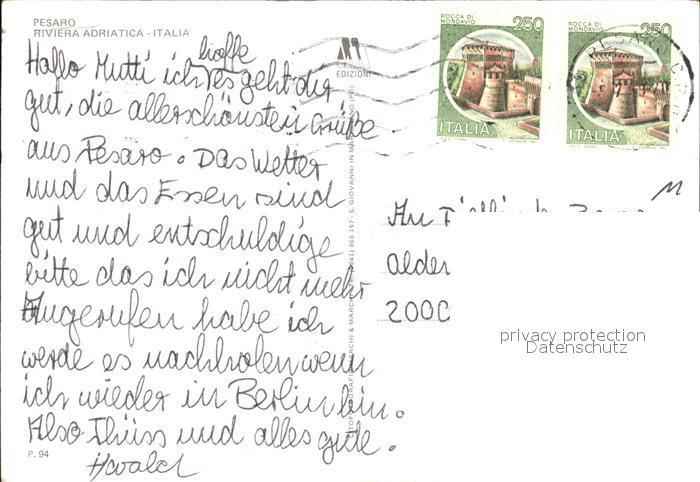 PESARO
RIVIERA ADRIATICA - ITALIA
Hallo Mutti ich hoffe es geht dir
gut, die allerschönsten Grüße
aus Pesaro. Das Wetter
und das Essen sind
gut und entschuldige
bitte das ich nicht mehr
Angerufen habe ich
werde es nachholen wenn
ich wieder in Berlin bin.
Also Thüss und alles gute.
P. 94
ART
EDIZIONI
ROCCA DI
MONDAVIO
250
ITALIA
ROCCA DI
MONDAVIO
250
ITALIA
PESARO
An
2000
privacy protection
Datenschutz